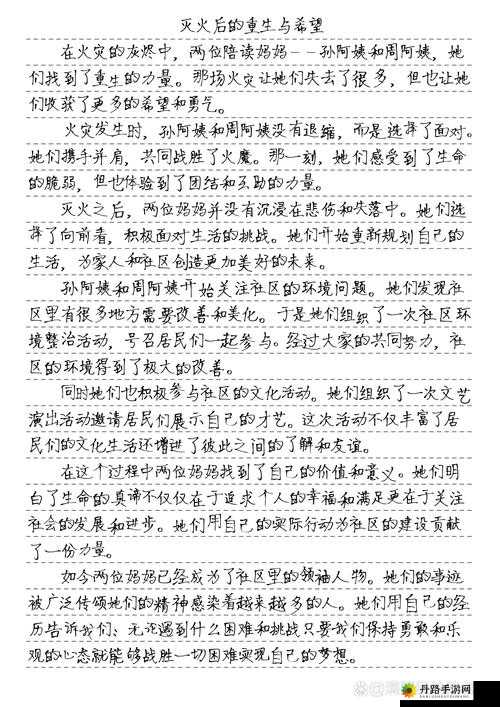 灭火后的重生与希望
在火灾的灰烬中，两位陪读妈妈--孙阿姨和周阿姨，她
们找到了重生的力量。那场火灾让她们失去了很多，但也让她
们收获了更多的希望和勇气。
火灾发生时，孙阿姨和周阿姨没有退缩，而是选择了面对。
她们携手并肩，共同战胜了火魔。那一刻，她们感受到了生命
的脆弱，但也体验到了团结和互助的力量。
灭火之后，两位妈妈并没有沉浸在悲伤和失落中。她们选
择了向前看，积极面对生活的挑战。她们开始重新规划自己的
生活，为家人和社区创造更加美好的未来。
孙阿姨和周阿姨开始关注社区的环境问题。她们发现社
区里有很多地方需要改善和美化。于是她们组织了一次社区环
境整治活动，号召居民们一起参与。经过大家的共同努力，社
区的环境得到了极大的改善。
同时她们也积极参与社区的文化活动。她们组织了一次文艺
演出活动邀请居民们展示自己的才艺。这次活动不仅丰富了居
民们的文化生活还增进了彼此之间的了解和友谊。
在这个过程中两位妈妈找到了自己的价值和意义。她们明
白了生命的真谛不仅仅在于追求个人的幸福和满足更在于关注
社会的发展和进步。她们用自己的实际行动为社区的建设贡献
了一份力量。
如今两位妈妈已经成为了社区里的领袖人物。她们的事迹
被广泛传颂她们的精神感染着越来越多的人。她们用自己的经
历告诉我们：无论遇到什么困难和挑战只要我们保持勇敢和乐
观的心态就能够战胜一切困难实现自己的梦想。
丹路手游网